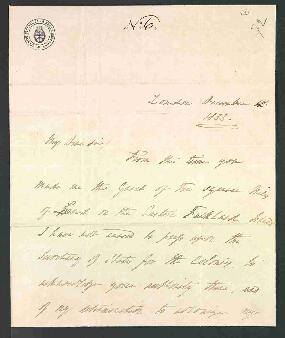 No. 6.
London December
1833.
My dear Sir,
From the time you
made me the Grant of ten square Miles
of Land on the Eastern Falkland Island
I have not ceased to press upon the
Secretary of State for the Colonies to
acknowledge your authority there, and
of my intention to